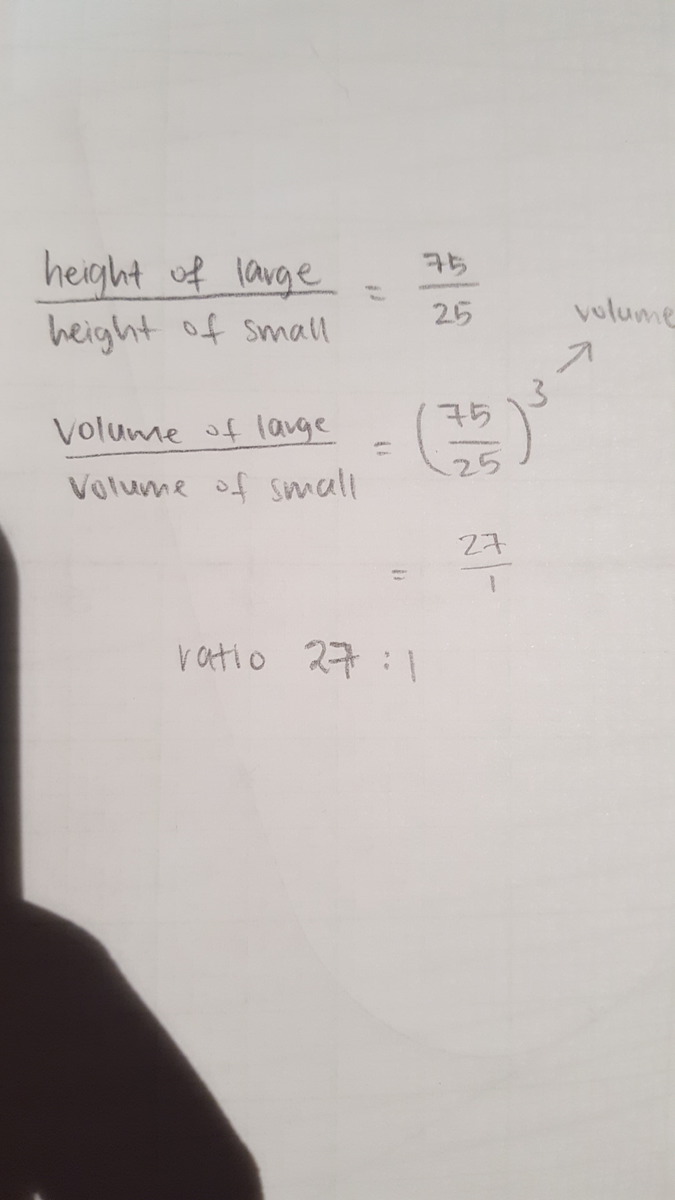 height of large / height of small = 75 / 25
volume
Volume of large / Volume of small = (75 / 25)^3
= 27 / 1
ratio 27 : 1